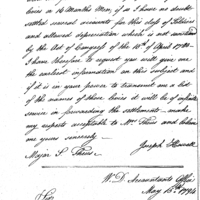 lines a 16 Months Men, as I have no doubt
settled several accounts for this class of Soldiers
and allowed depreciation which is not warranted
by the Act of Congress of the 10th of April 1780.
I have therefore to request you will give me
the earliest information on this subject and
if it is in your power to transmit me a list
of the names of those lines it will be of infinite
service in forwarding the settlements
my respects acceptable to Mrs. and believe
me yours sincerely
Joseph Howell
Major S.
W. D. Accountants Office
May 15th 1794
Sir